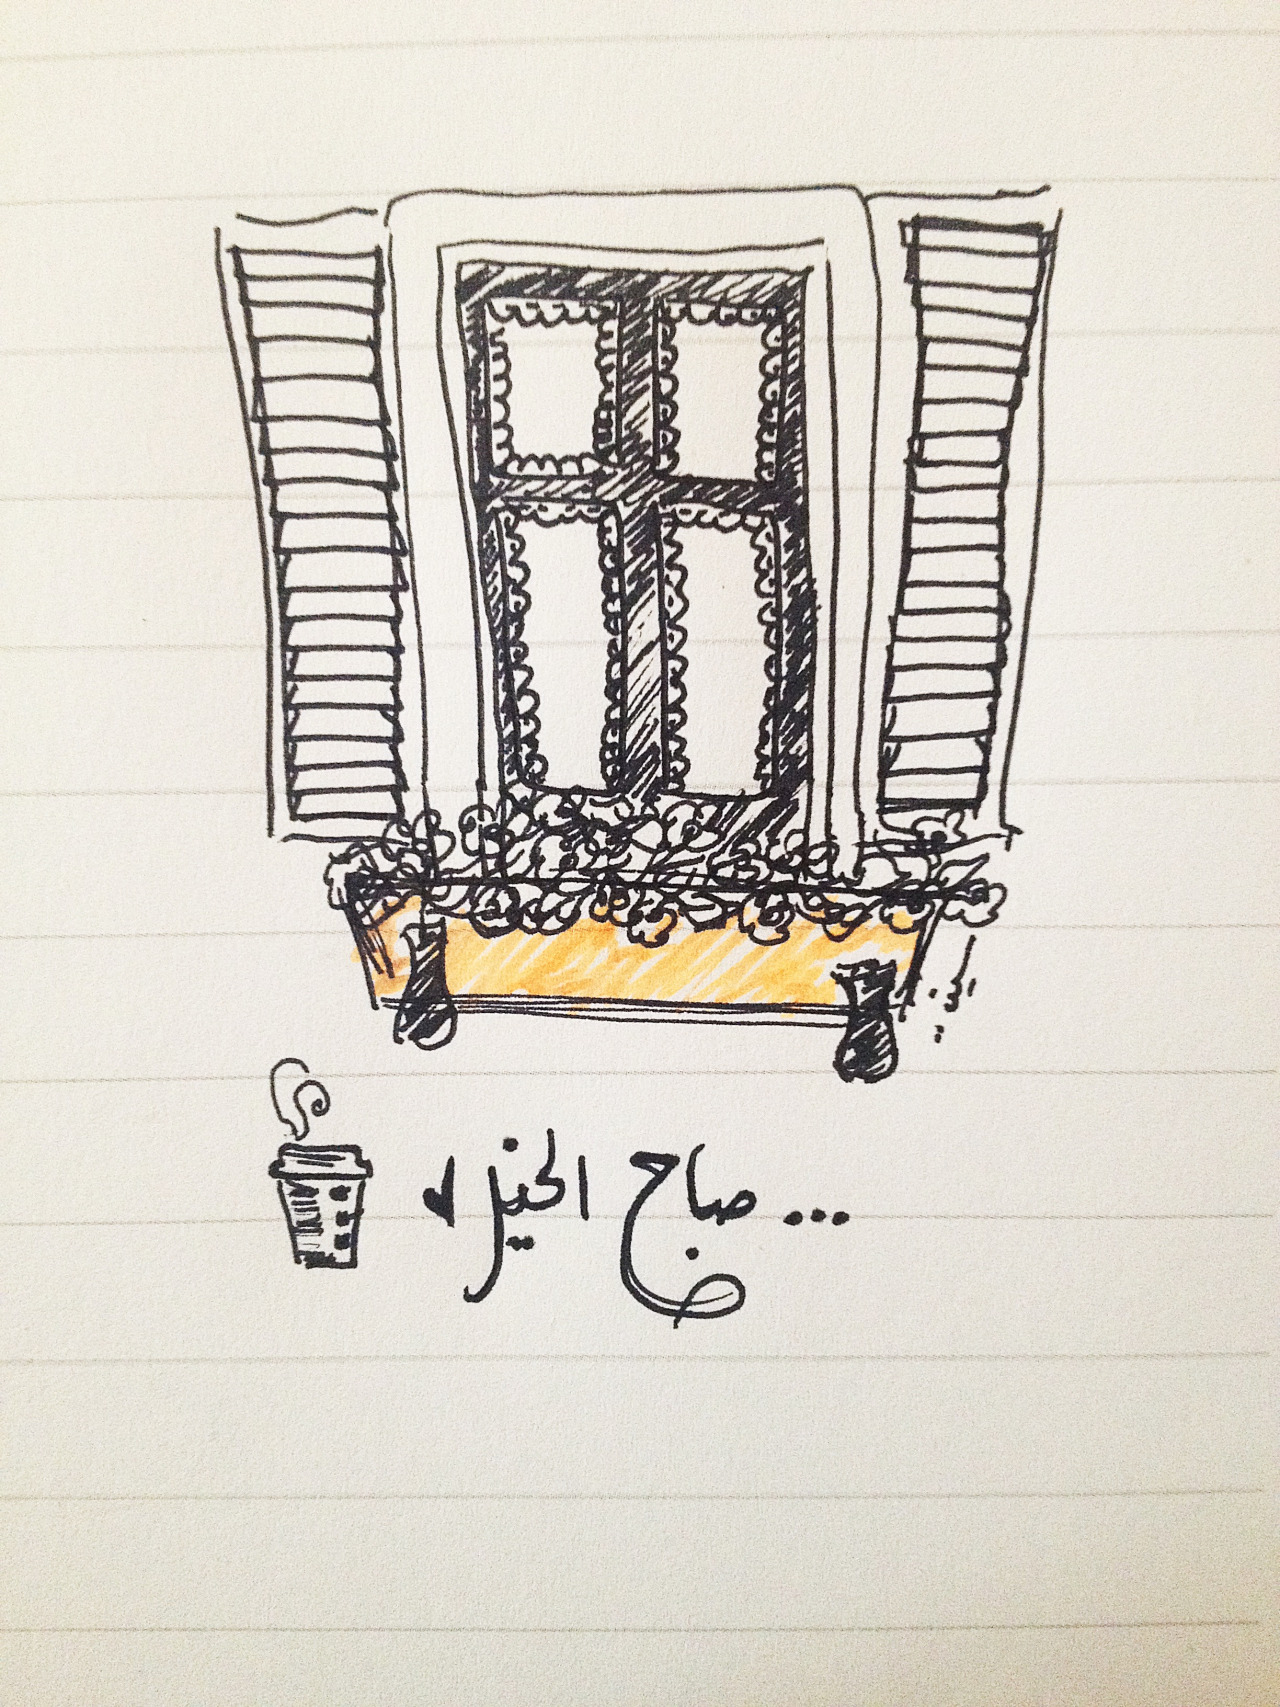 ... صباح الخير